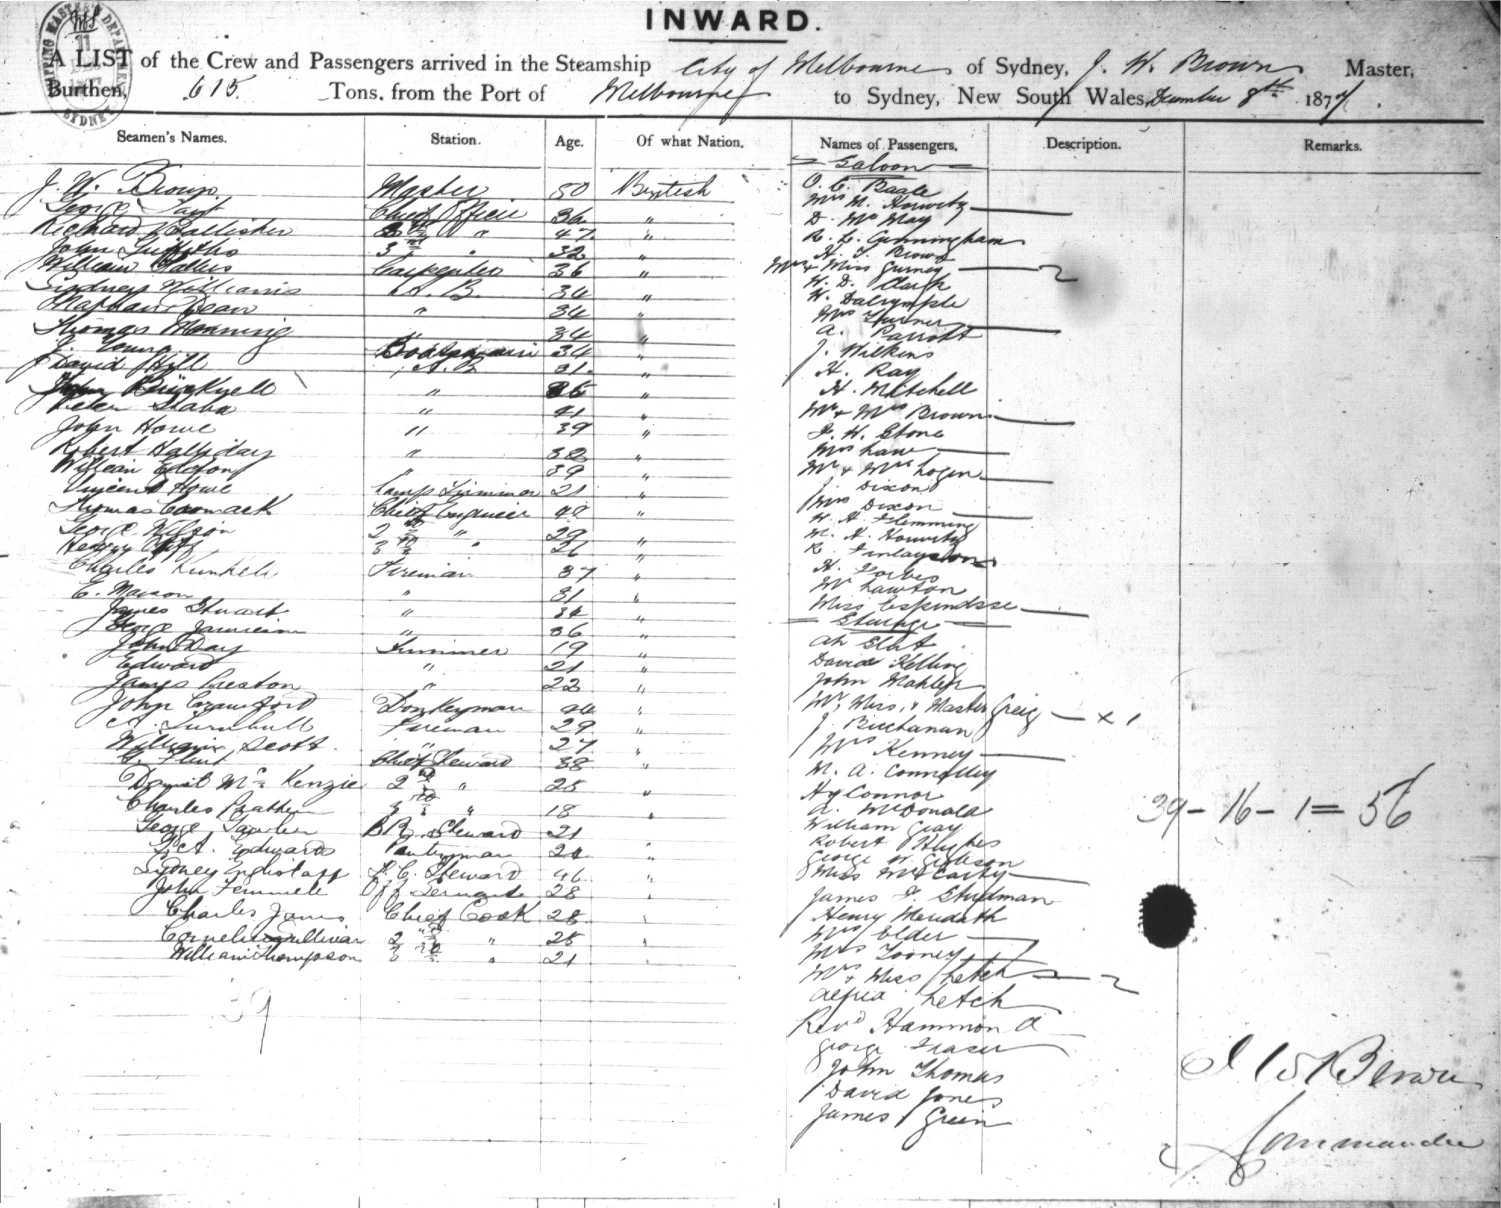 INWARD.
A LIST of the Crew and Passengers arrived in the Steamship City of Melbourne of Sydney, J. W. Brown Master,
Burthen, 615 Tons, from the Port of Melbourne to Sydney, New South Wales, December 8th 1877
Seamen's Names. Station. Age. Of what Nation. Names of Passengers. Description. Remarks.
J. W. Brown Master 50 British
George Chief Officer 36 "
Richard 2nd " 47 "
John Griffiths 3rd " 32 "
William Carpenter 36 "
Sydney Williams A. B. 34 "
Dean " 34 "
Thomas Manning " 34 "
J. Young Boatswain 34 "
David Hill A. B. 31 "
John " "
Peter " 41 "
John Howe " 39 "
Robert Halliday " 32 "
William " 39 "
Vincent Howe Lamp Trimmer 21 "
Thomas Cormack Chief Engineer 40 "
George Wilson 2nd " 29 "
Henry 3rd " 26 "
Charles Kunkel Fireman 37 "
E. Mason " 31 "
James Stuart " 34 "
George Jamieson " 36 "
John Day Trimmer 19 "
Edward " 21 "
James Creston " 22 "
John Crawford Donkeyman "
A. Turnbull Fireman 29 "
William Scott " 27 "
G. Flint Chief Steward 38 "
McKenzie 2nd " 25 "
Charles 3rd " 18 "
George B.R. Steward 21 "
Edwards Pantryman 24 "
Sydney F. C. Steward 46 "
John Femmell Off. Servant 28 "
Charles James Chief Cook 28 "
Cornelius Sullivan 2nd " 25 "
William Thompson 3rd " 21 "
39
Saloon
O. C. Beale
Mrs M. Horwitz
D. McKay
R. L. Cunningham
H. J. Brown
Mrs & Miss Gurney 2
H. D. Clark
W. Dalrymple
Mrs Turner
A. Parrott
J. Wilkins
H. Ray
H. Mitchell
Mr & Mrs Brown
F. W. Stone
Miss Law
Mr & Mrs Logan
J. Dixon
Mrs Dixon
W. H. Flemming
M. H. Horwitz
R. Finlayson
H. Forbes
Mr Lawton
Miss
Steerage
Ah Slat
David Kelling
John Mahler
Mr, Miss, & Master Greig x 1
J. Buchanan
Mrs Kenney
M. A. Connolley
Hy Connor
A. McDonald
William Gray
Robert Hughes
George W. Gibbeson
Miss McCarthy
James F. Studman
Henry Merideth
Mrs Elder
Mrs Looney
Mrs & Miss Letch 2
Alfred Letch
Revd Hammond
George Fraser
John Thomas
David Jones
James Green
39 - 16 - 1 = 56
J W Brown
Commander